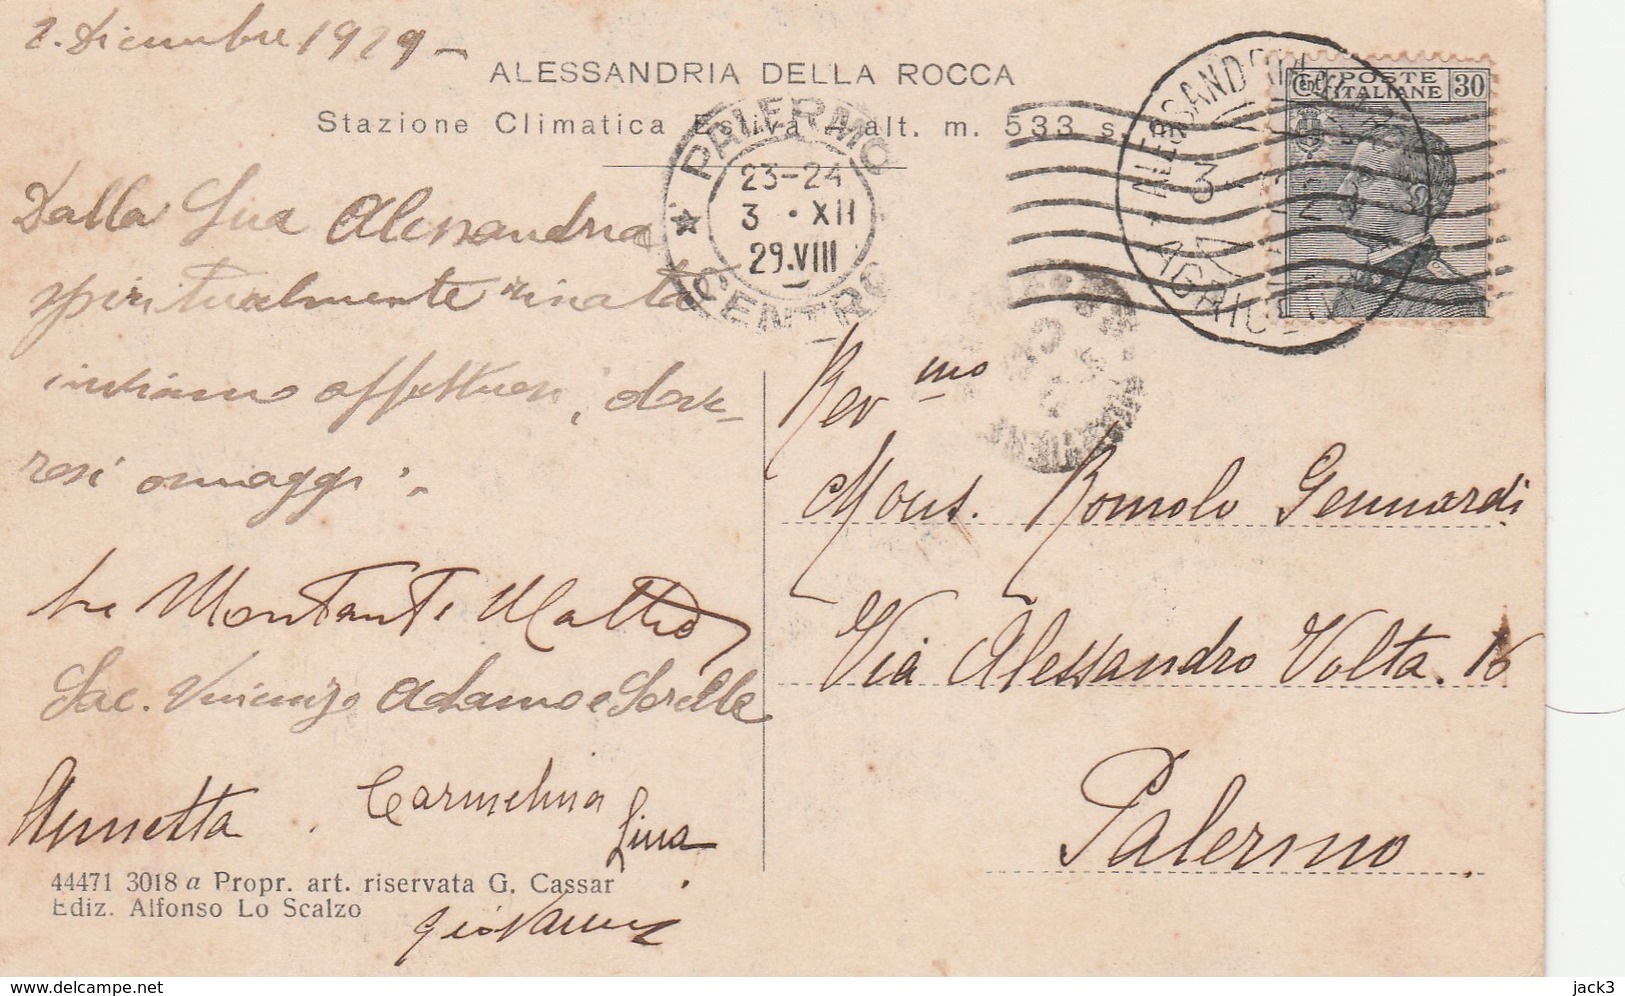 2. Dicembre 1929 –
ALESSANDRIA DELLA ROCCA
Stazione Climatica Estiva - alt. m. 533 s. m.
PALERMO
CENTRO
23-24
3 · XII
29.VIII
ALESSANDRIA
3
12
AGRIGENTO
POSTE
ITALIANE
Cent
30
Dalla Sua Alessandria
spiritualmente rinata
inviamo affettuosi, dove-
rosi omaggi.
Montanti Matteo
Sac. Vincenzo Adamo e Sorelle
Annetta . Carmelina
Lina
Giovanna
Rev mo
Mons. Romolo Gennardi
Via Alessandro Volta. 16
Palermo
44471 3018 a Propr. art. riservata G. Cassar
Ediz. Alfonso Lo Scalzo
www.delcampe.net
jack3